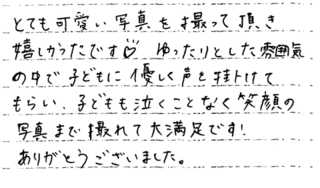 とても可愛い写真を撮って頂き
嬉しかったです♡ ゆったりとした雰囲気
の中で子どもに優しく声を掛けて
もらい、子どもも泣くことなく笑顔の
写真まで撮れて大満足です!
ありがとうございました。